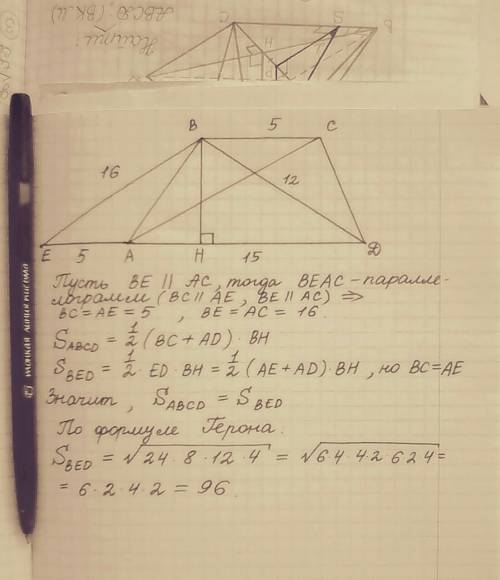 Найти:
ABCD, (BKM)
C S B
H
B 5 C
16 12
E 5 A H 15 D
Пусть BE || AC, тогда BEAC - паралле-
лограмм (BC || AE, BE || AC) ⇒
BC = AE = 5 , BE = AC = 16.
S_ABCD = 1/2 (BC + AD) · BH
S_BED = 1/2 · ED · BH = 1/2 (AE + AD) · BH , но BC = AE
Значит , S_ABCD = S_BED
По формуле Герона:
S_BED = √24 · 8 · 12 · 4 = √6·4·4·2·6·2·4 =
= 6 · 2 · 4 · 2 = 96.